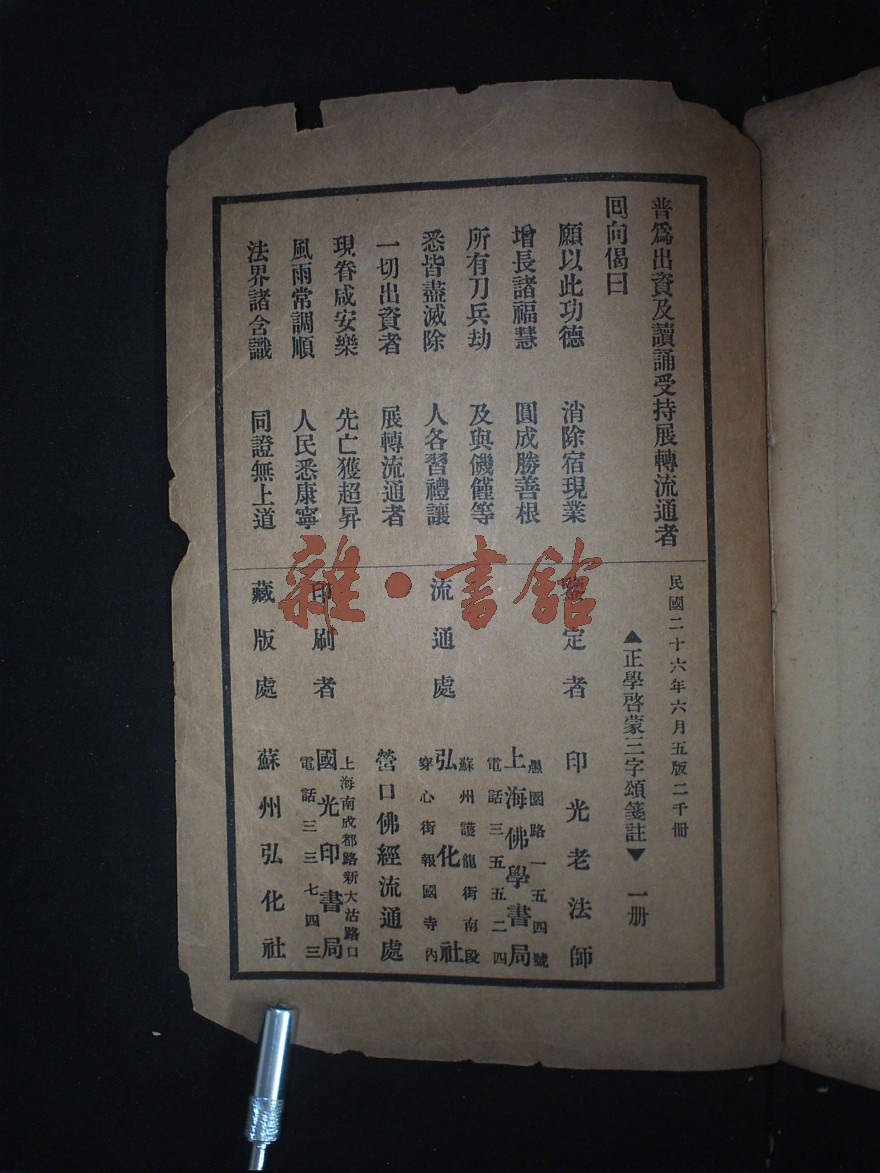 普爲出資及讀誦受持展轉流通者
回向偈曰
願以此功德　消除宿現業
增長諸福慧　圓成勝善根
所有刀兵劫　及與饑饉等
悉皆盡滅除　人各習禮讓
一切出資者　展轉流通者
現眷咸安樂　先亡獲超昇
風雨常調順　人民悉康寧
法界諸含識　同證無上道
民國二十六年六月五版二千冊
▲正學啓蒙三字頌箋註▼　一册
鑒定者　印光老法師
流通處
愚園路一五四號
上海佛學書局
電話三五五二四
蘇州護龍街南段
弘化社
穿心街報國寺內
營口佛經流通處
印刷者
上海南成都路新大沽路口
國光印書局
電話三三七四三
藏版處　蘇州弘化社
雜·書館